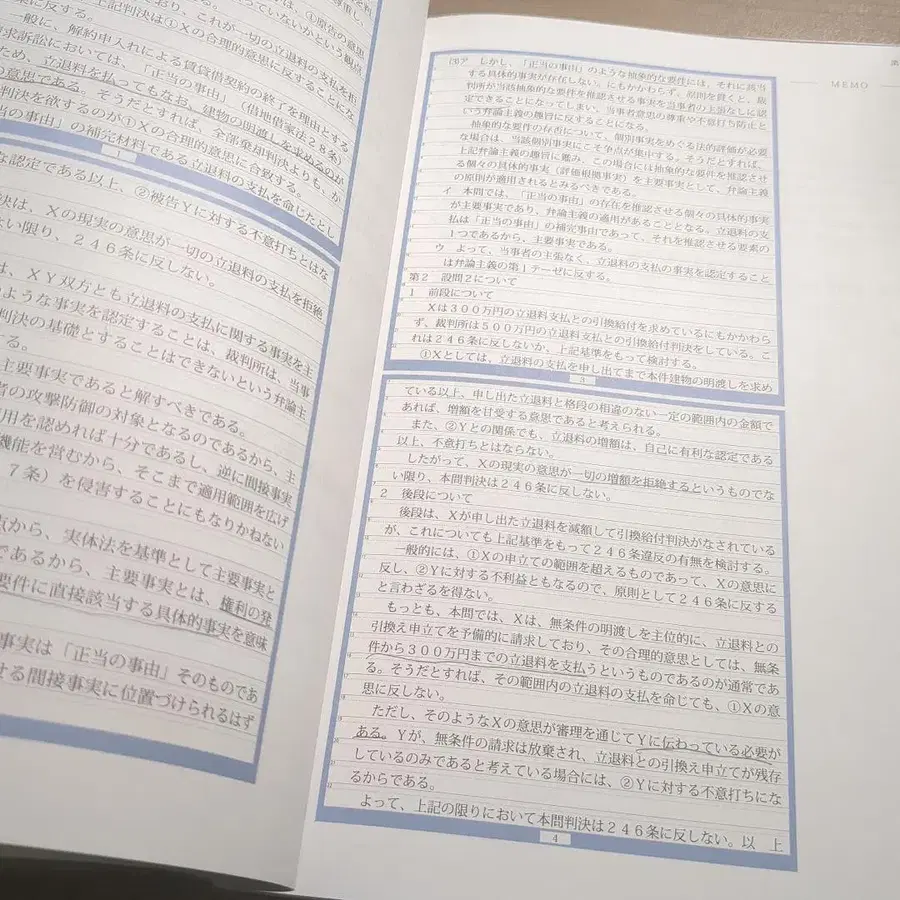 上記判決は①Xの合理的意思に反することにな
一般に、解約申入れによる賃貸借契約の終了を理由とする
求訴訟においては、「正当の事由」（借地借家法２８条）
ため、立退料を払ってもなお、建物の明渡しを求めるのが
の意思である。そうだとすれば、全部棄却判決よりも、か
判決を欲するのが①Xの合理的意思に合致する。
当の事由」の補完材料である立退料の支払を命じたとし
1
な認定である以上、②被告Yに対する不意打ちとはな
決は、Xの現実の意思が一切の立退料の支払を拒絶
ない限り、２４６条に反しない。
は、XY双方とも立退料の支払に関する事実を主
のような事実を認定することは、裁判所は、当事
判決の基礎とすることはできないという弁論主
する。
主要事実であると解すべきである。
者の攻撃防御の対象となるのであるから、主
用を認めれば十分であるし、逆に間接事実
機能を営むから、そこまで適用範囲を広げ
７条）を侵害することにもなりかねない
点から、実体法を基準として主要事実と
であるから、主要事実とは、権利の発
要件に直接該当する具体的事実を意味
事実は「正当の事由」そのものであ
せる間接事実に位置づけられるはず
MEMO
⑶ア　しかし、「正当の事由」のような抽象的な要件には、それに該当
する具体的事実が存在しない。にもかかわらず、原則を貫くと、裁
判所が当該抽象的な要件を推認させる事実を当事者の主張なしに認
定できることになってしまい、当事者意思の尊重や不意打ち防止と
いう弁論主義の趣旨に反することになる。
抽象的な要件の存否について、個別事実をめぐる法的評価が必要
な場合は、当該個別事実にこそ争点が集中する。そうだとすれば、
上記弁論主義の趣旨に鑑み、この場合には抽象的な要件を推認させ
る個々の具体的事実（評価根拠事実）を主要事実として、弁論主義
の原則が適用されるとみるべきである。
イ　本問では、「正当の事由」の存在を推認させる個々の具体的事実
が主要事実であり、弁論主義の適用があることとなる。立退料の支
払は「正当の事由」の補完事由であって、それを推認させる要素の
１つであるから、主要事実である。
ウ　よって、当事者の主張なく、立退料の支払の事実を認定すること
は弁論主義の第１テーゼに反する。
第２　設問２について
１　前段について
Xは３００万円の立退料支払との引換給付を求めているにもかかわら
ず、裁判所は５００万円の立退料支払との引換給付判決をしている。こ
れは２４６条に反しないか、上記基準をもって検討する。
①Xとしては、立退料の支払を申し出てまで本件建物の明渡しを求め
3
ている以上、申し出た立退料と格段の相違のない一定の範囲内の金額で
あれば、増額を甘受する意思であると考えられる。
また、②Yとの関係でも、立退料の増額は、自己に有利な認定である
以上、不意打ちとはならない。
したがって、Xの現実の意思が一切の増額を拒絶するというものでな
い限り、本問判決は２４６条に反しない。
２　後段について
後段は、Xが申し出た立退料を減額して引換給付判決がなされている
が、これについても上記基準をもって２４６条違反の有無を検討する。
一般的には、①Xの申立ての範囲を超えるものであって、Xの意思に
反し、②Yに対する不利益ともなるので、原則として２４６条に反する
と言わざるを得ない。
もっとも、本問では、Xは、無条件の明渡しを主位的に、立退料との
引換え申立てを予備的に請求しており、その合理的意思としては、無条
件から３００万円までの立退料を支払うというものであるのが通常であ
る。そうだとすれば、その範囲内の立退料の支払を命じても、①Xの意
思に反しない。
ただし、そのようなXの意思が審理を通じてYに伝わっている必要が
ある。Yが、無条件の請求は放棄され、立退料との引換え申立てが残存
しているのみであると考えている場合には、②Yに対する不意打ちにな
るからである。
よって、上記の限りにおいて本問判決は２４６条に反しない。以　上
4